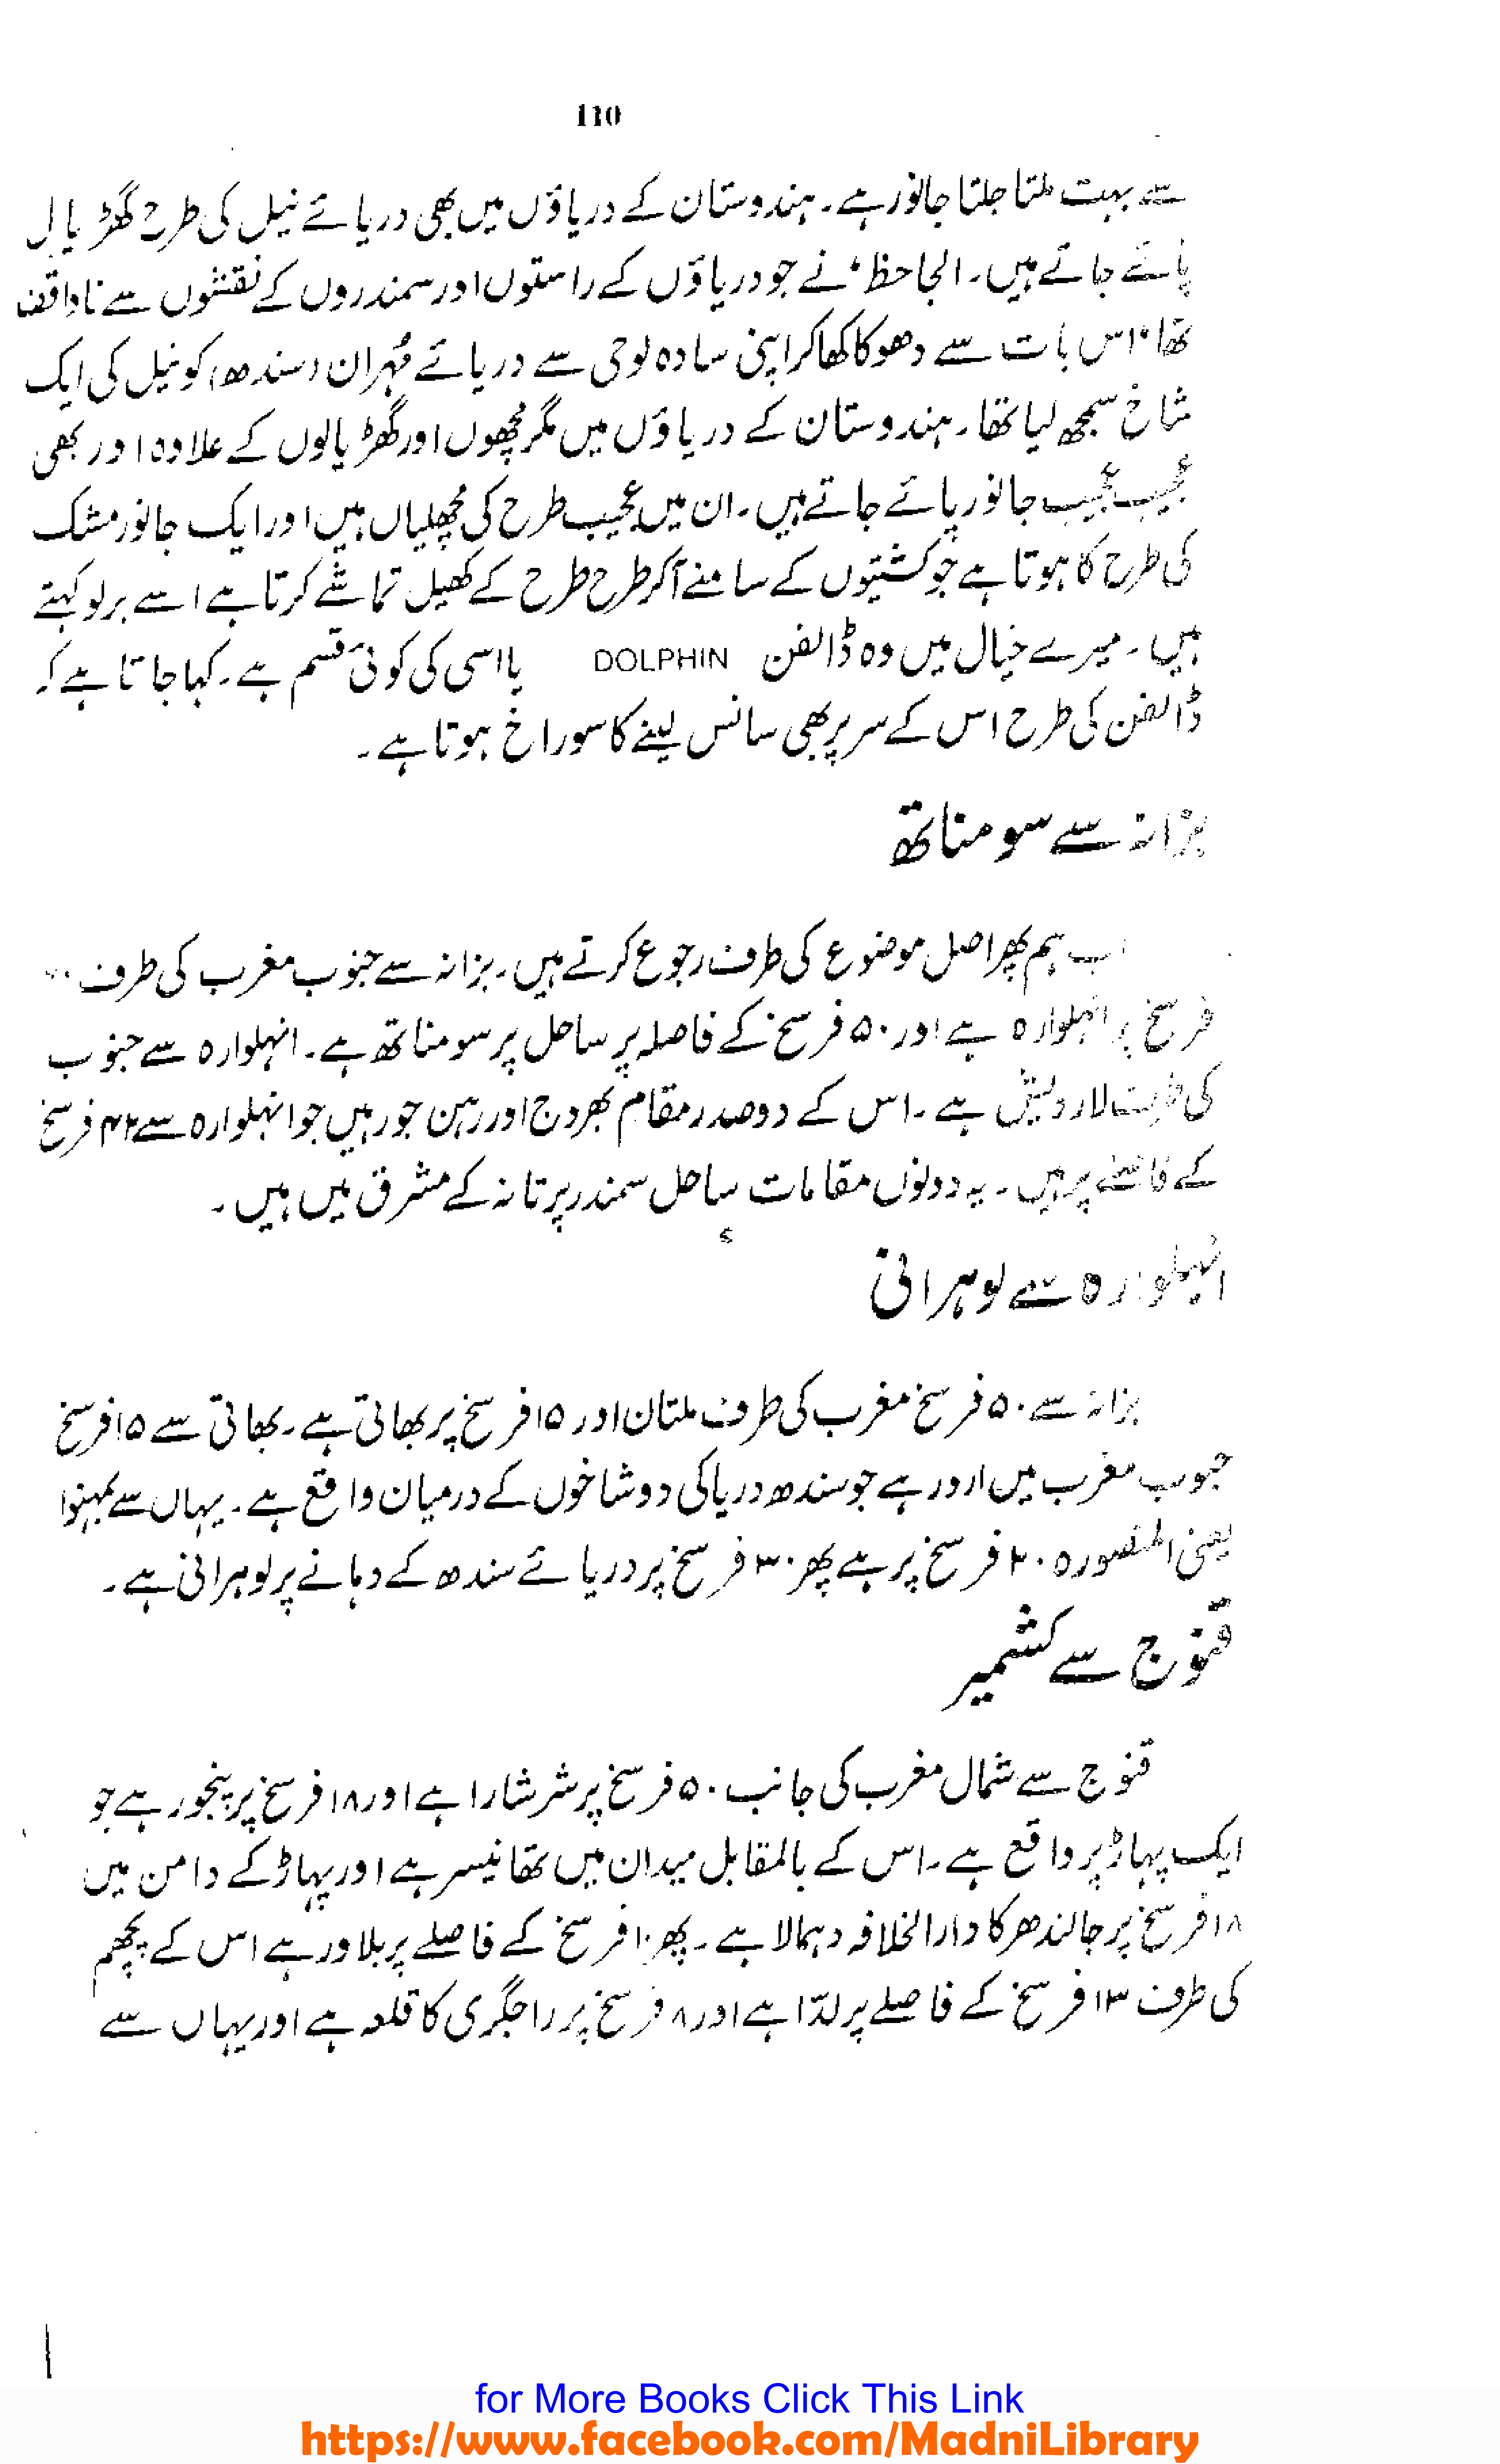 110
سے بہت ملتا جلتا جانور ہے۔ ہندوستان کے دریاؤں میں بھی دریائے نیل کی طرح گھڑیال
پائے جاتے ہیں۔ الجاحظ نے جو دریاؤں کے راستوں اور سمندروں کے نقشوں سے ناواقف
تھا، اس بات سے دھوکا کھا کر اپنی سادہ لوحی سے دریائے مہران (سندھ) کو نیل کی ایک
شاخ سمجھ لیا تھا۔ ہندوستان کے دریاؤں میں مگرمچھوں اور گھڑیالوں کے علاوہ اور بھی
عجیب عجیب جانور پائے جاتے ہیں۔ ان میں عجیب طرح کی مچھلیاں ہیں اور ایک جانور مشک
کی طرح کا ہوتا ہے جو کشتیوں کے سامنے آکر طرح طرح کے کھیل تماشے کرتا ہے اسے برلو کہتے
ہیں۔ میرے خیال میں وہ ڈالفن DOLPHIN یا اسی کی کوئی قسم ہے۔ کہا جاتا ہے کہ
ڈالفن کی طرح اس کے سر پر بھی سانس لینے کا سوراخ ہوتا ہے۔
بزانہ سے سومناتھ
اب ہم پھر اصل موضوع کی طرف رجوع کرتے ہیں۔ بزانہ سے جنوب مغرب کی طرف
فرسخ پر انہلوارہ ہے اور ۵۰ فرسخ کے فاصلہ پر ساحل پر سومناتھ ہے۔ انہلوارہ سے جنوب
کی طرف لاردیش ہے۔ اس کے دو صدر مقام بھروج اور رہن جور ہیں جو انہلوارہ سے ۴۲ فرسخ
کے فاصلے پر ہیں۔ یہ دونوں مقامات ساحل سمندر پر تانہ کے مشرق میں ہیں۔
انہلوارہ سے لوہرانی
بزانہ سے ۵۰ فرسخ مغرب کی طرف ملتان اور ۱۵ فرسخ پر بھاتی ہے۔ بھاتی سے ۱۵ فرسخ
جنوب مغرب میں ارور ہے جو سندھ دریا کی دو شاخوں کے درمیان واقع ہے۔ یہاں سے بمہنوا
یعنی المنصورہ ۲۰ فرسخ پر ہے پھر ۳۰ فرسخ پر دریائے سندھ کے دہانے پر لوہرانی ہے۔
قنوج سے کشمیر
قنوج سے شمال مغرب کی جانب ۵۰ فرسخ پر شرشارا ہے اور ۱۸ فرسخ پر پنجور ہے جو
ایک پہاڑ پر واقع ہے۔ اس کے بالمقابل میدان میں تھانیسر ہے اور پہاڑ کے دامن میں
۱۸ فرسخ پر جالندھر کا دارالخلافہ دہمالا ہے۔ پھر ۱۰ فرسخ کے فاصلے پر بلاور ہے اس کے پچھم
کی طرف ۱۳ فرسخ کے فاصلے پر لدّا ہے اور ۸ فرسخ پر راجگری کا قلعہ ہے اور یہاں سے
for More Books Click This Link
https://www.facebook.com/MadniLibrary